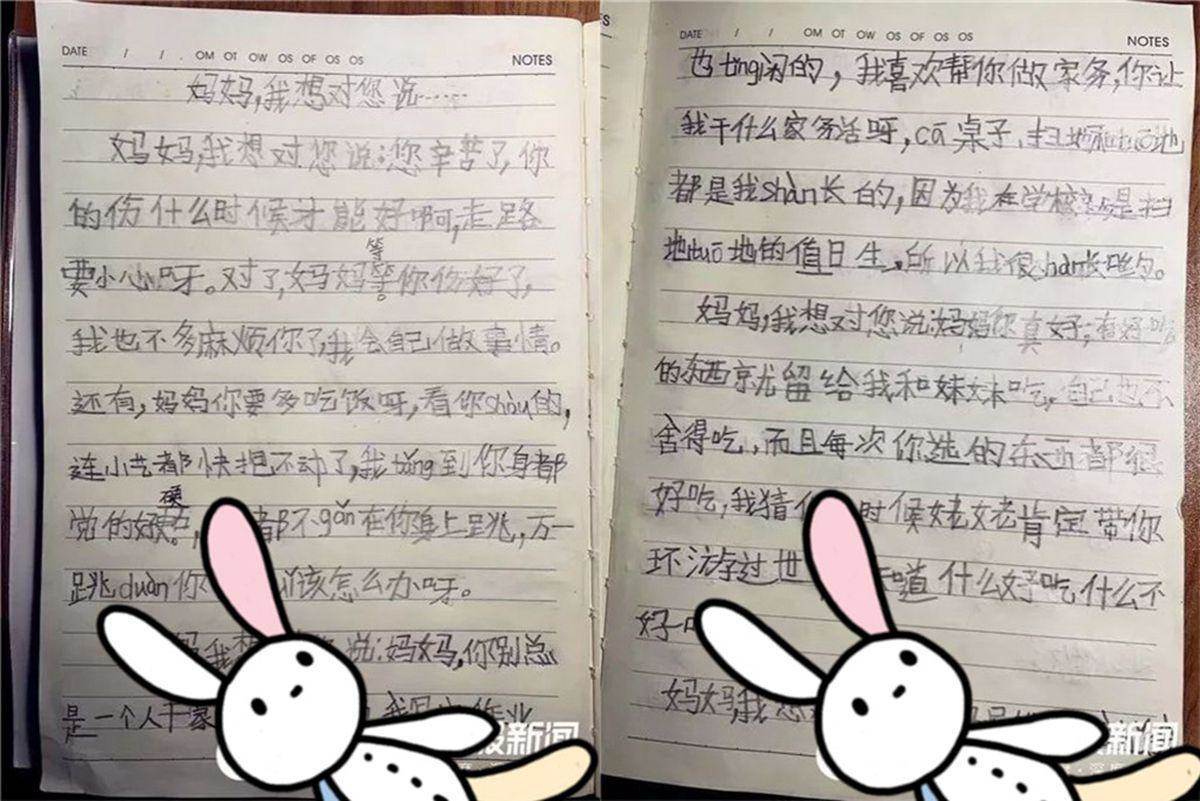 DATE / / . OM OT OW OS OF OS OS NOTES
妈妈,我想对您说……
妈妈,我想对您说:您辛苦了,你
的伤什么时候才能好啊,走路
等
要小心呀。对了,妈妈等你伤好了,
我也不多麻烦你了,我会自己做事情。
还有,妈妈你要多吃饭呀,看你shòu的,
连小艺都快抱不动了,我tǎng到你身都
硬
觉的好,都不gǎn在你身上跳,万一
跳duàn你该怎么办呀。
妈我想说:妈妈,你别总
是一个人干家作业
DATE / / OM OT OW OS OF OS OS NOTES
也tǐng闲的,我喜欢帮你做家务,你让
我干什么家务活呀,cā桌子,扫地和tuō地
都是我shàn长的,因为我在学校就是扫
地tuō地的值日生,所以我很shàn长。
妈妈,我想对您说:妈妈你真好;有好吃
的东西京尤留给我和妹妹吃,自己也不
舍得吃,而且每次你选的东西都很
好吃,我猜你时候姥姥肯定带你
环游过世道什么好吃什么不
好
妈妈,我想
新闻